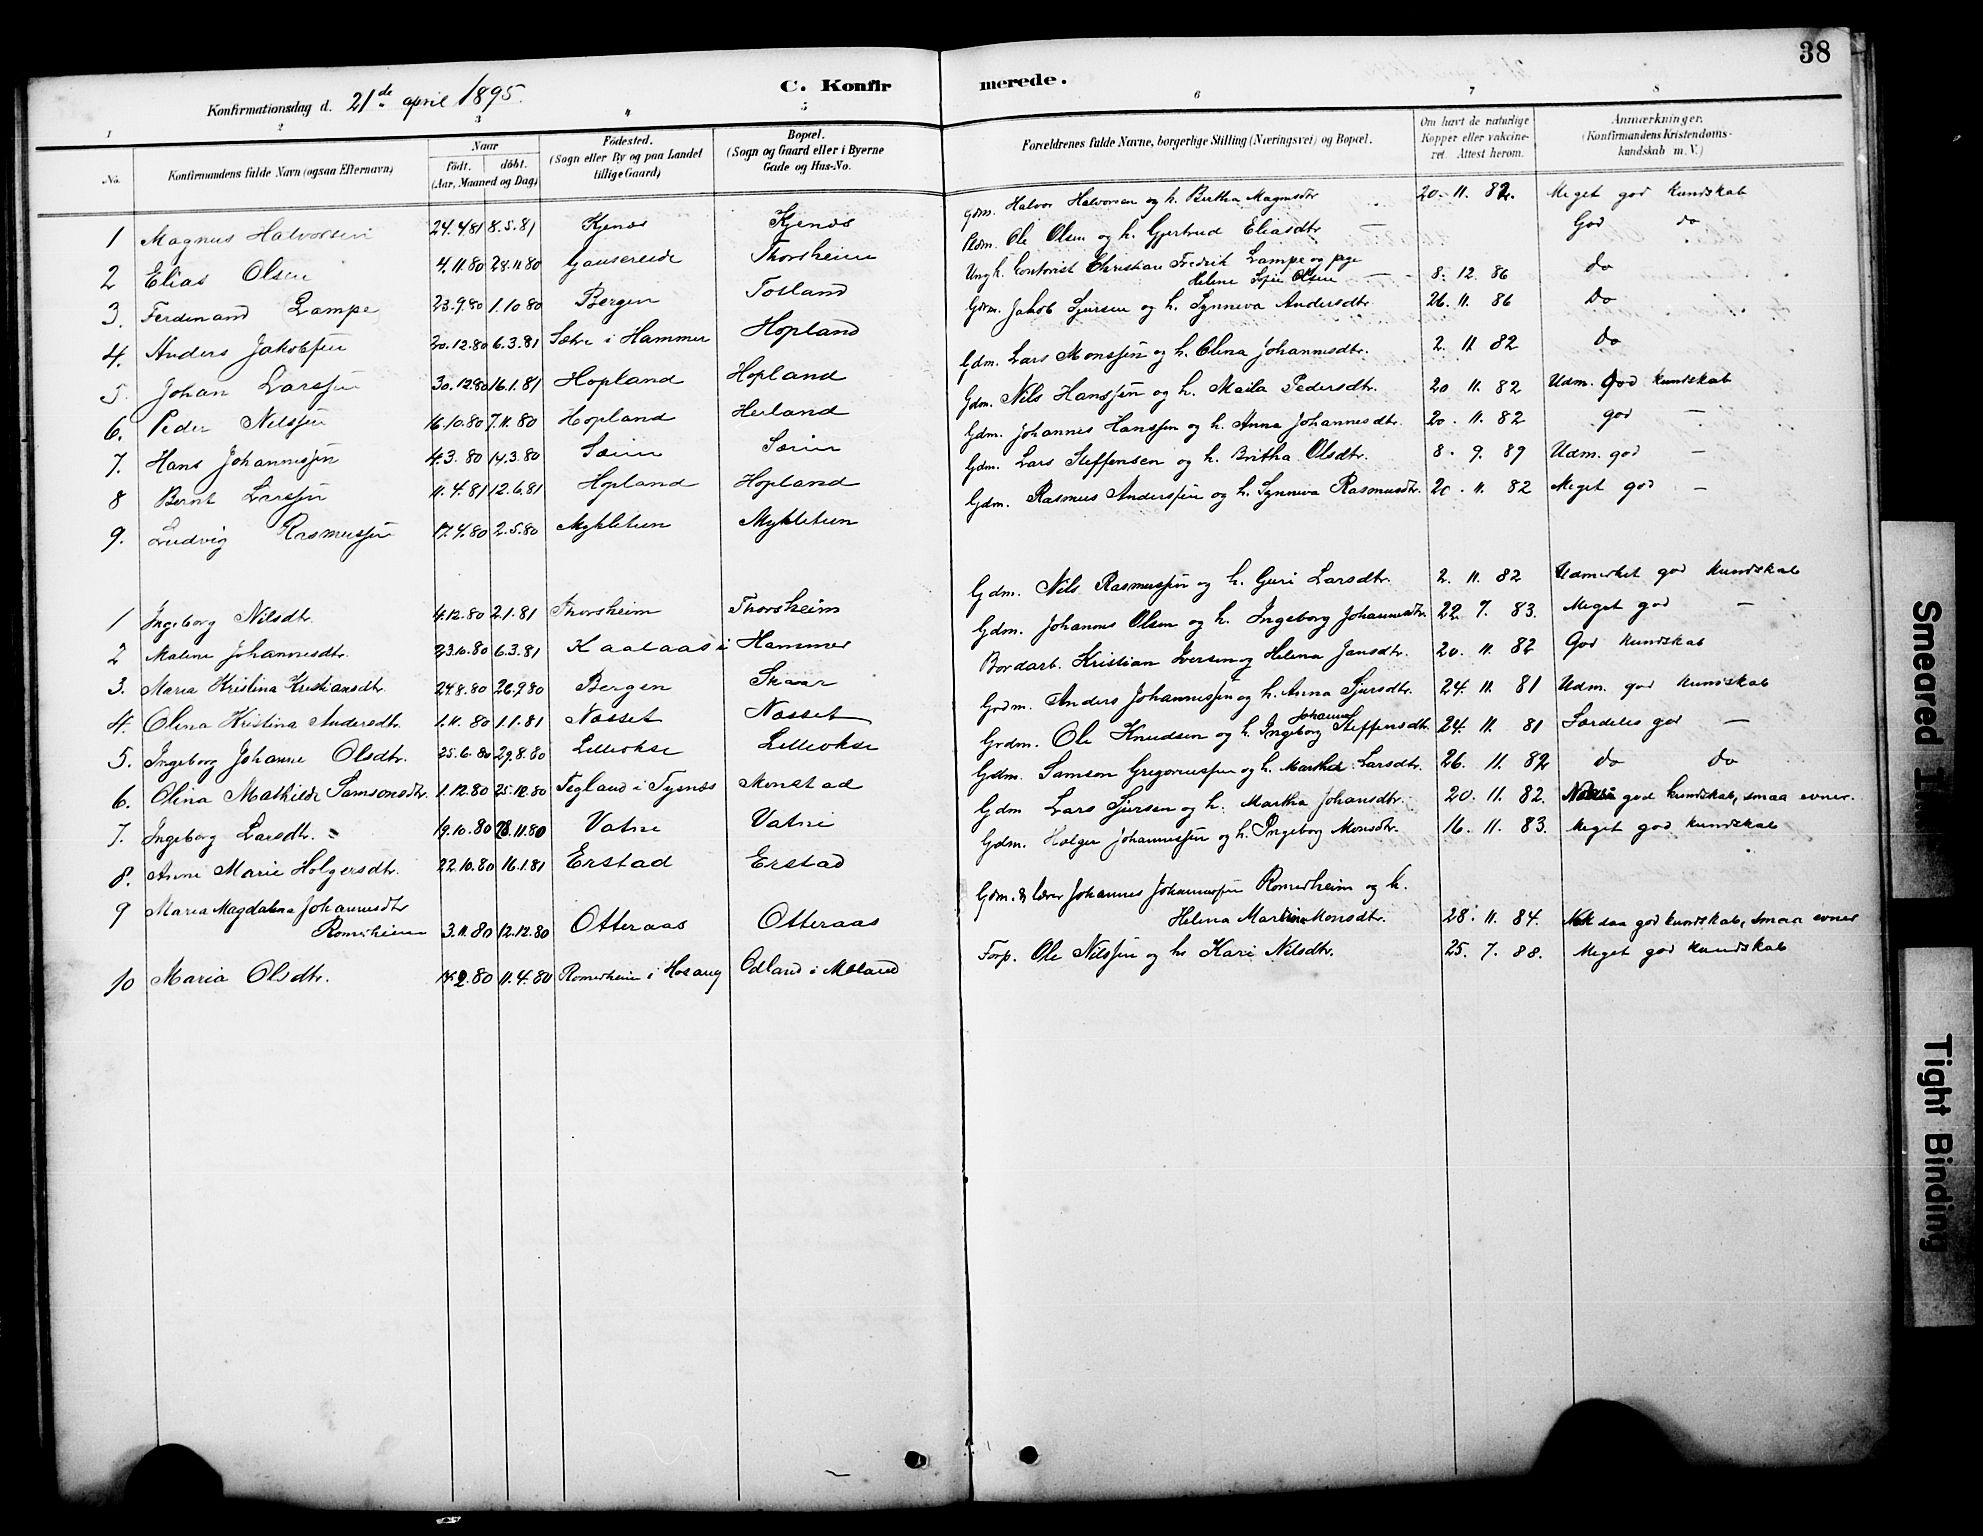 38
C. Konfirmerede.
Konfirmationsdag d. 21de april 1895.
1 2 3 4 5 6 7 8
No. Konfirmandens fulde Navn (ogsaa Efternavn) Naar født. døbt. (Aar, Maaned og Dag) Fødested. (Sogn eller By og paa Landet tillige Gaard) Bopæl. (Sogn og Gaard eller i Byerne Gade og Hus-No. Forældrenes fulde Navne, borgerlige Stilling (Næringsvei) og Bopæl. Om havt de naturlige Kopper eller vakcineret. Attest herom. Anmærkninger. (Konfirmandens Kristendomskundskab m. V.)
1 Magnus Halvorsen 24.4.81 8.5.81 Kjenes Kjenes Gdm. Halvor Halvorsen og h. Bertha Magnusdtr 20. 11. 82. Meget god kundskab
2 Elias Olsen 4.11.80 28.11.80 Gausereide Thorsheim Pldm. Ole Olsen og h. Gjertrud Eliasdtr God do
3. Ferdinand Lampe 23.9.80 1.10.80 Bergen Totland Ungk. Contorist Christian Fredrik Lampe og pige Helene Sofie Olsen 8. 12. 86 do
4. Anders Jakobsen 20.12.80 6.3.81 Sætre i Hammer Hopland Gdm. Jakob Sjursen og h. Synneva Andersdtr. 26. 11. 86 Do
5. Johan Larssen 30.12.80 16.1.81 Hopland Hopland Gdm. Lars Monssen og h. Olina Johannesdtr. 2. 11. 82 do
6. Peder Nilssen 16.10.80 7.11.80 Hopland Herland Gdm. Nils Hanssen og h. Maila Pedersdtr. 20 11. 82 Udm. god kundskab
7. Hans Johannessen 4.3.80 14.3.80 Sæim Sæim Gdm. Johannes Hanssen og h. Anna Johannesdtr. 20. 11. 82 god —
8 Bernt Larssen 11.4.81 12.6.81 Hopland Hopland Gdm. Lars Steffensen og h. Britha Olsdtr. 8. 9. 89 Udm. god —
9. Ludvig Rasmussen 17.4.80 2.5.80 Mykletun Mykletun Gdm. Rasmus Anderssen og h. Synneva Rasmusdtr. 20. 11. 82 Meget god —
1 Ingeborg Nilsdtr. 4.12.80 2.1.81 Thorsheim Thorsheim Gdm. Nils Rasmussen og h. Guri Larsdtr. 2. 11. 82 Udmerket god kundskab
2 Maline Johannesdtr. 23.10.80 6.3.81 Kaalaas i Hammer Gdm. Johannes Olsen og h. Ingeborg Johannesdtr. 22. 7. 83. Meget god —
3. Maria Kristina Kristiansdtr. 24.8.80 26.9.80 Bergen Skaar Bordarb. Kristian Iversen og Helena Jansdtr. 20. 11. 82 God kundskab
4. Olina Kristina Andersdtr. 1.11.80 1.1.81 Næsset Næsset Grdm. Anders Johannessen og h. Anna Sjursdtr. 24. 11. 81 Udm. god kundskab
5. Ingeborg Johanne Olsdtr. 25.6.80 29.8.80 Lilleokse Lilleokse Grdm. Ole Knudsen og h. Ingeborg Johanna Steffensdtr. 24. 11. 81 Særdeles god —
6. Olina Mathilde Samsonsdtr. 1.12.80 25.12.80 Tegland i Tysnes Monstad Gdm. Samson Gregoriussen og h. Martha Larsdtr. 26. 11. 82 do do
7. Ingeborg Larsdtr. 19.10.80 28.11.80 Vatne Vatne Gdm Lars Sjursen og h. Martha Johansdtr. 20. 11. 82. god kundskab, smaa evner.
8. Anne Marie Holgersdtr. 22.10.80 16.1.81 Erstad Erstad Gdm. Holger Johannessen og h. Ingeborg Monsdtr. 16. 11. 83. Meget god kundskab
9 Maria Magdalena Johannesdtr Romerheim 3.11.80 12.12.80 Otteraas Otteraas Gdm. & lærer Johannes Johannessen Romerheim og h. Helena Martine Monsdtr. 28. 11. 84. Nok saa god kundskab, smaa evner
10 Maria Olsdtr. .2.80 11.4.80 Romerheim i Hosang Odland i Møland Forp. Ole Nilssen og h. Kari Nilsdtr. 25. 7. 88. Meget god kundskab
Smeared
Tight Binding